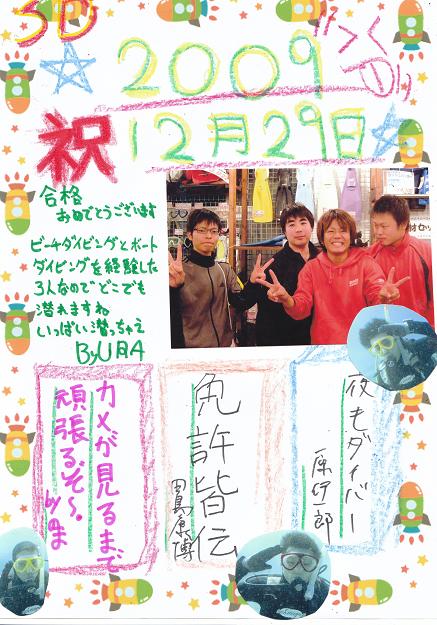 SD
2009
祝 12月29日
合格
おめでとうございます
ビーチダイビングとボート
ダイビングを経験した
3人なのでどこでも
潜れますね
いっぱい潜っちゃえ
By
カメが見るまで
頑張るぞ~。
by
免許皆伝
夜もダイバー